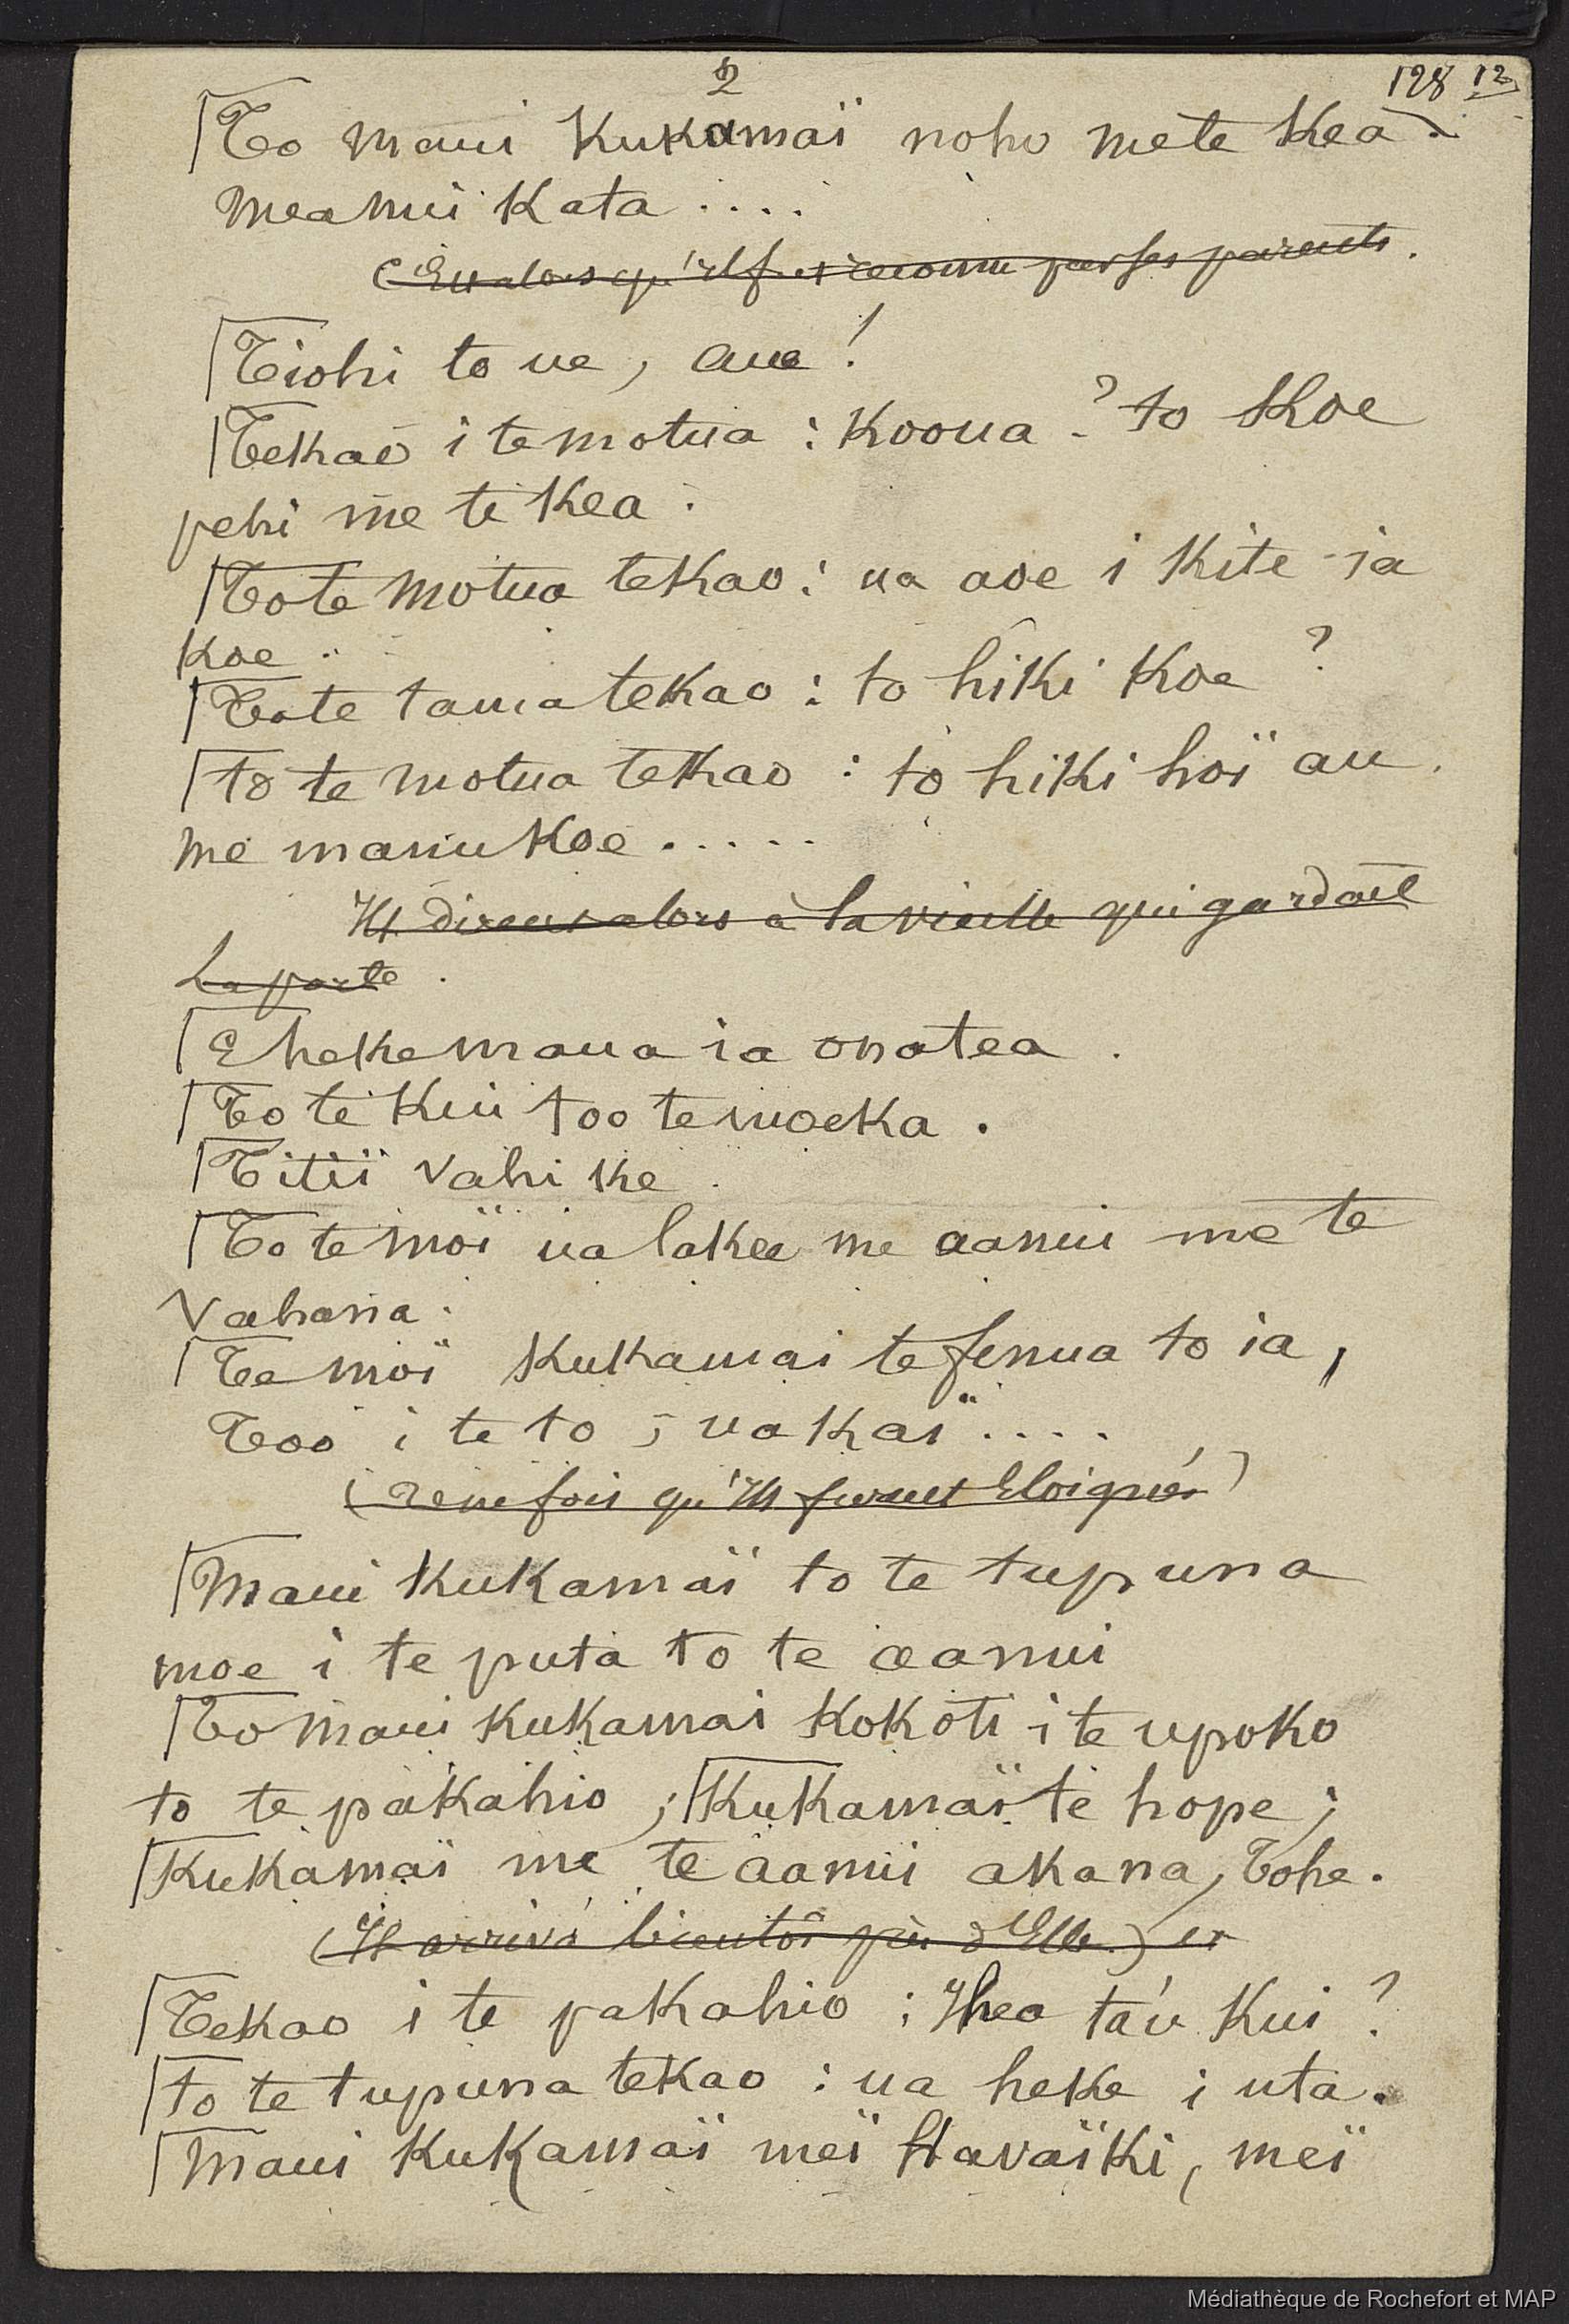 2
128 12
To Maui Kukamaï noho mete Kea.
Meamui Kata ....
(Et alors qu'il fut reconnu par ses parents.
Tiohi to ue, aue !
Tekao i te motua : Kooua ? to Koe
pehi me te Kea .
To te Motua tekao : ua aoe i Kite ia
Koe ..
To te tama tekao : to hiki Koe ?
to te motua tekao : to hiki hoï au.
me manu Koe .....
Ils dirent alors à la vieille qui gardait
La porte .
E heke maua ia onatea .
To te Kui too te moeka .
Titiï vahi ke .
To te moï ua lakee me aamui me te
Vahana .
Te moï Kukamai te fenua to ia,
Too i te to ; ua Kaï ....
(Une fois qu'ils furent Eloignés)
Maui Kukamaï to te tupuna
moe i te puta to te aamui
To Maui Kukamai Kokoti i te upoko
to te pakahio ; Kukamaï te hope ;
Kukamaï me te aamui akana, Tohe.
(Il arriva bientôt près d'Elle) et
Tekao i te pakahio : Ihea ta'u Kui ?
to te tupuna tekao : ua heke i uta .
Maui Kukamaï meï Havaïki, meï
Médiathèque de Rochefort et MAP